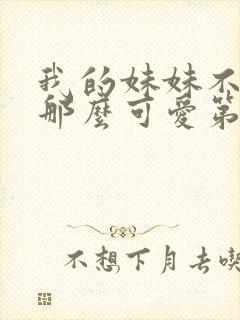 我的妹妹不
那麼可愛第
不想下月去喫